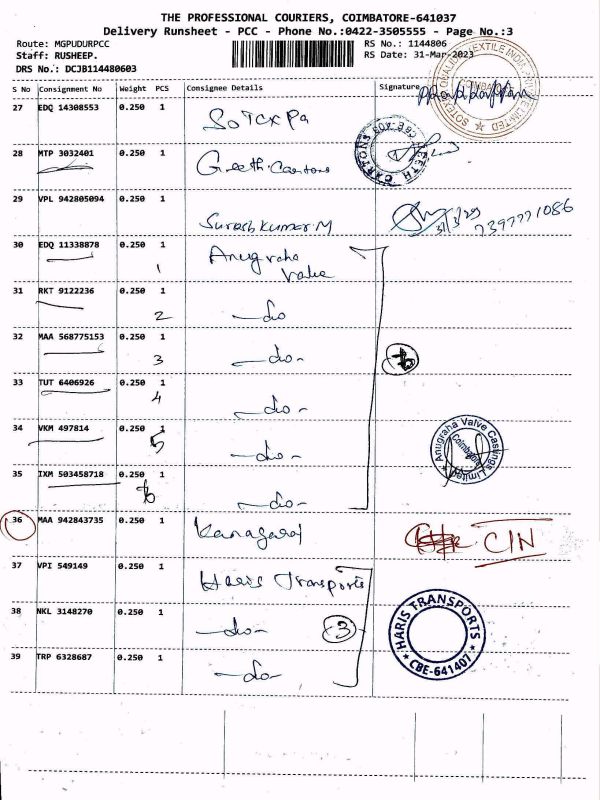 THE PROFESSIONAL COURIERS, COIMBATORE-641037
Delivery Runsheet - PCC - Phone No.:0422-3505555 - Page No.:3
Route: MGPUDURPCC RS No.: 1144806
Staff: RUSHEEP. RS Date: 31-Mar-2023
DRS No.: DCJB114480603
S No Consignment No Weight PCS Consignee Details Signature
27 EDQ 14308553 0.250 1 SOTEXPA
28 MTP 3032401 0.250 1 Geeth. Cartons
29 VPL 942805094 0.250 1 Suresh Kumar. M 31/3/23 7397771086
30 EDQ 11338878 0.250 1 Anugraha Valve
1
31 RKT 9122236 0.250 1 -do
2
32 MAA 568775153 0.250 1 -do-
3
33 TUT 6406926 0.250 1 -do-
4
34 VKM 497814 0.250 1 -do-
5
35 IXM 503458718 0.250 1 -do-
6
Anugraha Valve Castings Limited
Coimbatore
36 MAA 942843735 0.250 1 Kanagaraj C/N
37 VPI 549149 0.250 1 Haris Transports
38 NKL 3148270 0.250 1 -do- 3
HARIS TRANSPORTS
CBE-641407
39 TRP 6328687 0.250 1 -do-